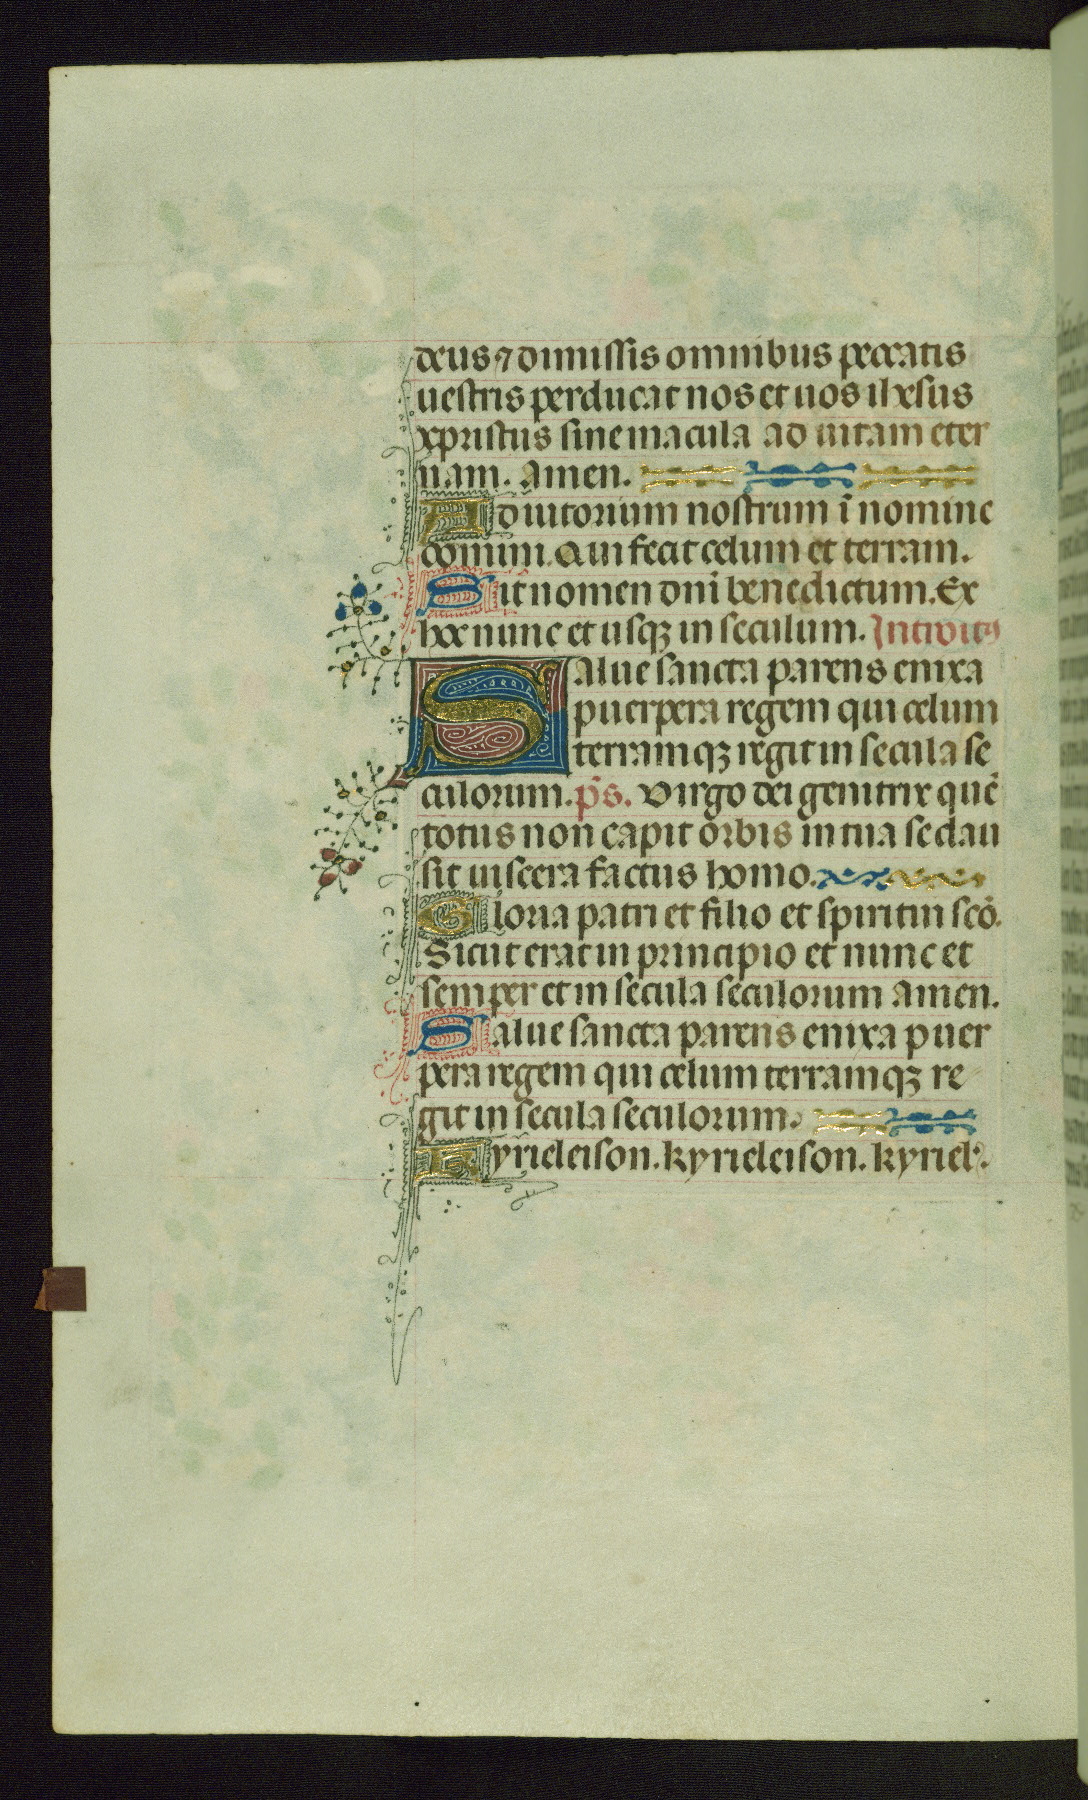 deus ⁊ dimissis omnibus peccatis
uestris perducat nos et uos ihesus
xpristus sine macula ad uitam eter
nam. amen.
Adiutorium nostrum ī nomine
domini. Qui fecit celum et terram.
Sit nomen dnī benedictum. Ex
hoc nunc et usqꝫ in seculum. Introitꝰ
Salue sancta parens enixa
puerpera regem qui celum
terramqꝫ regit in secula se
culorum. p̄s. Virgo dei genitrix quē
totus non capit orbis in tua se clau
sit uiscera factus homo.
Gloria patri et filio et spiritui scō.
Sicut erat in principio et nunc et
semper et in secula seculorum amen.
Salue sancta parens enixa puer
pera regem qui celum terramqꝫ re
git in secula seculorum.
Kyrieleison. kyrieleison. kyriel'.